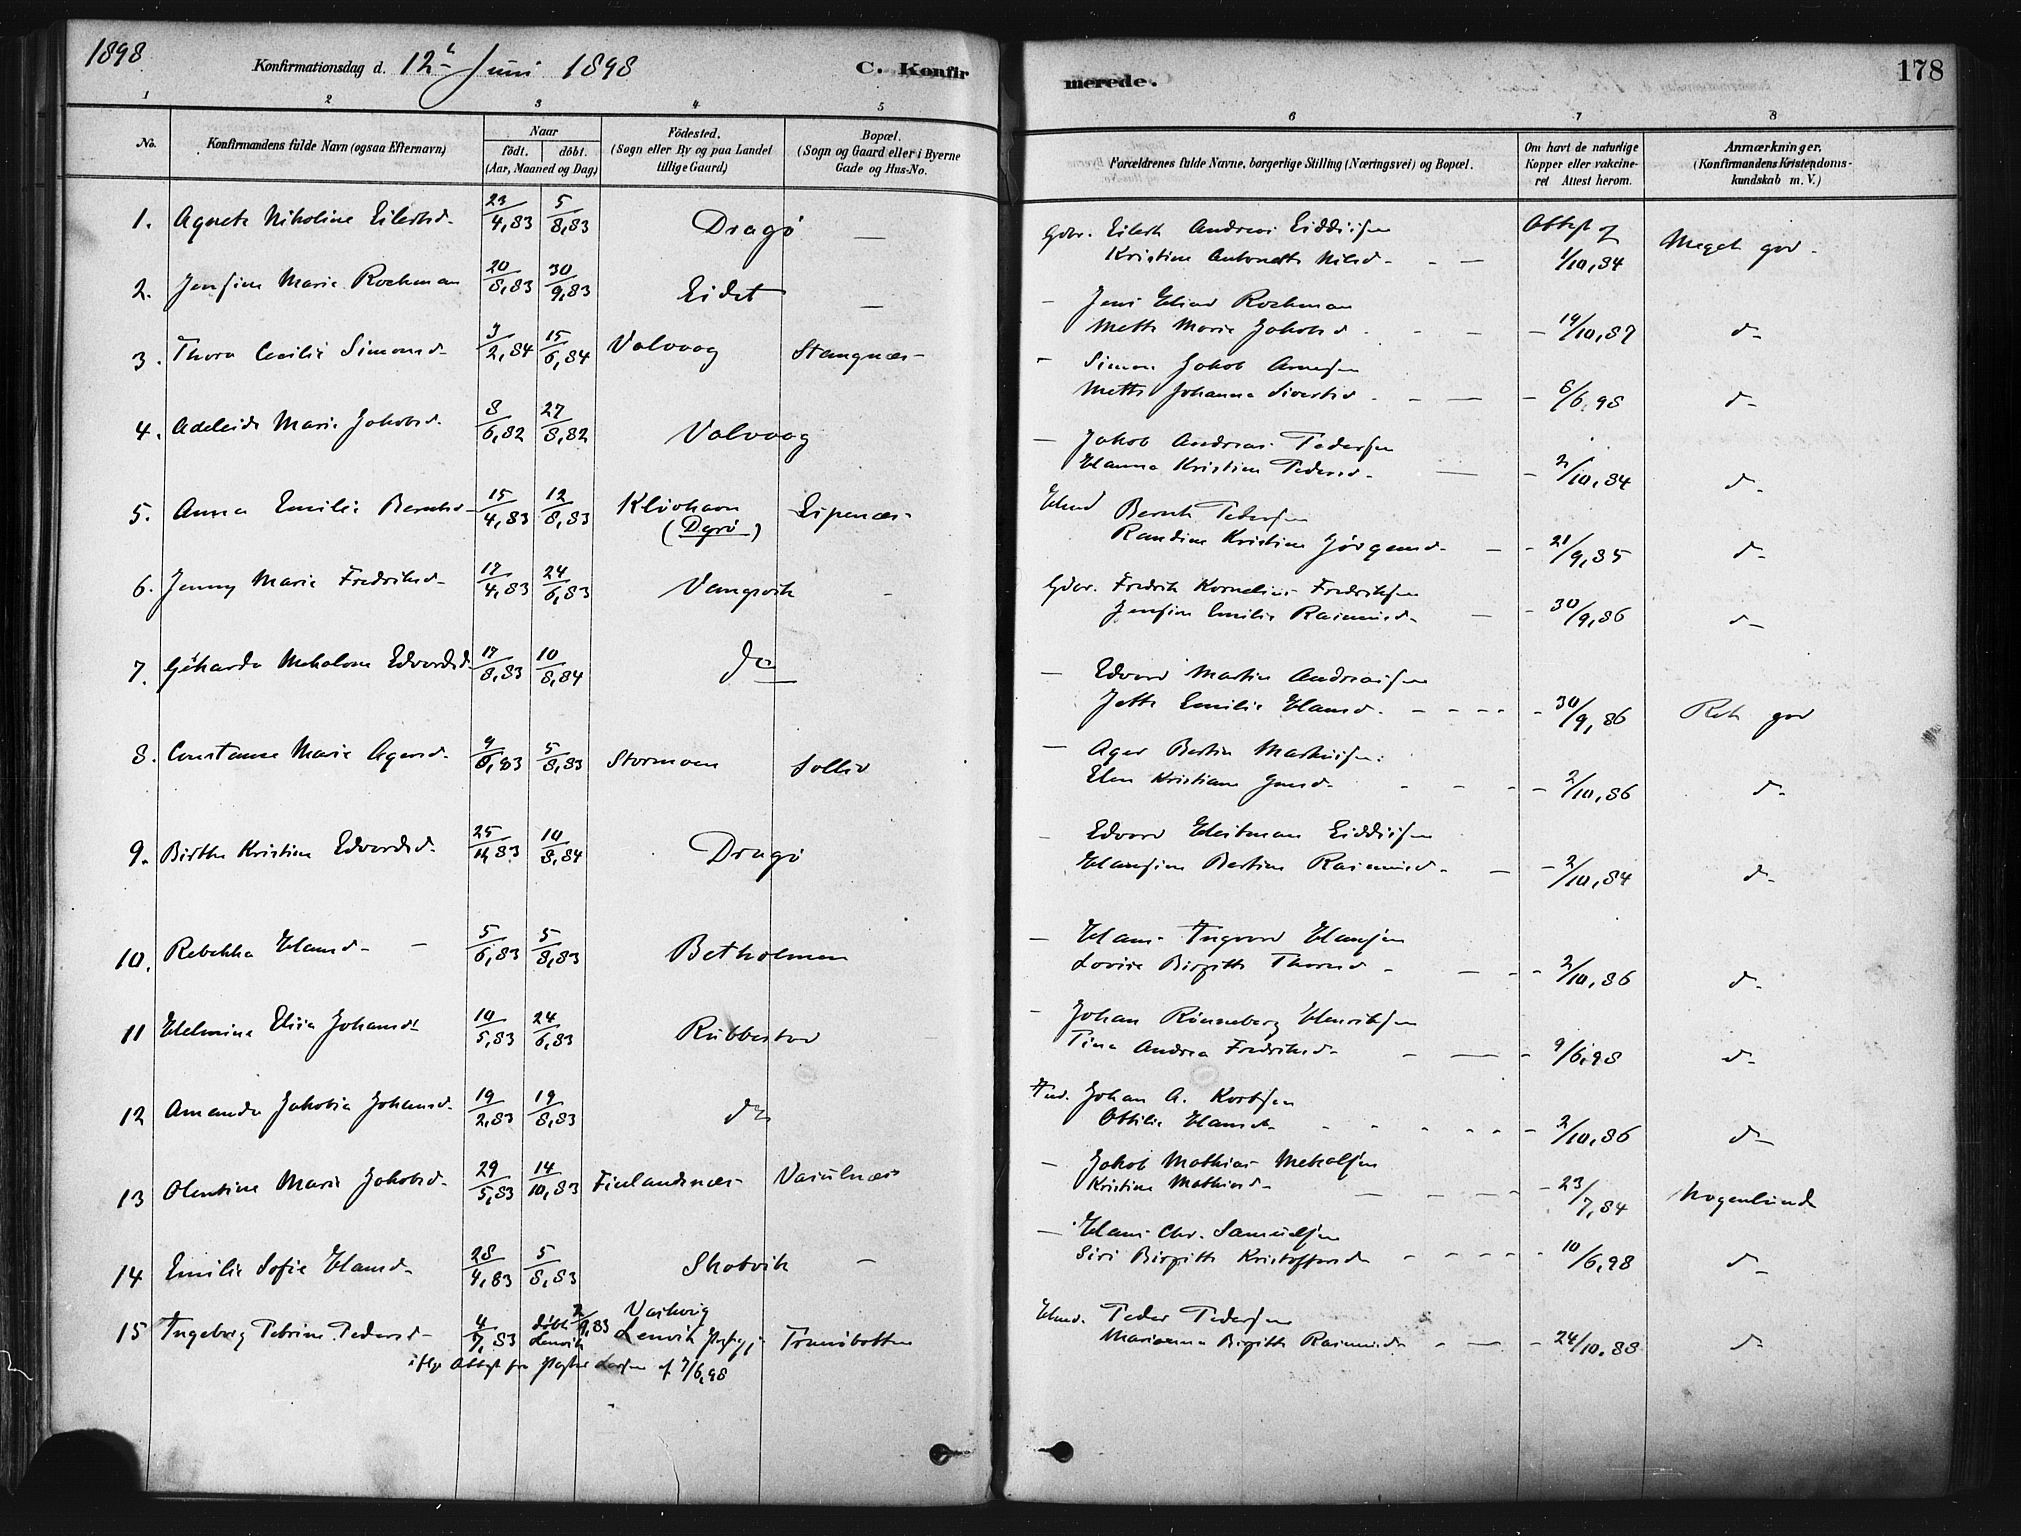 1898
Konfirmationsdag d. 12te Juni 1898
C. Konfirmerede.
178
1 2 3 4 5 6 7 8
No.
Konfirmandens fulde Navn (ogsaa Efternavn)
Naar
födt. döbt.
(Aar, Maaned og Dag)
Födested.
(Sogn eller By og paa Landet
tillige Gaard)
Bopæl.
(Sogn og Gaard eller i Byerne
Gade og Hus-No.
Forældrenes fulde Navne, borgerlige Stilling (Næringsvei) og Bopæl.
Om havt de naturlige
Kopper eller vakcine-
ret Attest herom.
Anmærkninger.
(Konfirmandens Kristendoms-
kundskab m. V.)
1. Agnete Nikoline Eilertsd. 23/4,83 5/8,83 Dragö — Gdbr. Eilert Andreas Eiddisen Attest af Meget god.
Kristine Antonette Nilsd. - — 1/10,84
2. Jensine Marie Rochman 20/8,83 30/9,83 Eidet — - Jens Elias Rochman
Mette Marie Jakobsd. - — 19/10,87 d-
3. Thora Cecilie Simonsd. 3/2,84 15/6,84 Valvaag Stangnæs - - Simon Jakob Arnesen
Mette Johanna Sivertsd. - — 6/6,98 d-
4. Adeleide Marie Jakobsd. 8/6,82 27/8,82 Valvaag — Jakob Andreas Pedersen
Hanna Kristine Pedersd. — - 2/10,84 d-
5. Anna Emilie Berntsd. 15/4,83 12/8,83 Kløvhavn (Dyrö) Lipenæs - Bernt Pedersen
Randine Kristine Jörgensd. — - 21/9,85 d-
6. Jenny Marie Fredriksd. 17/4,83 24/6,83 Vangsvik - Gdbr. Fredrik Kornelius Fredriksen
Jensine Emilie Rasmusd. — - 30/9,86 d-
7. Edvardsd. 17/8,83 10/8,84 do — — Edvard Martin Andreassen
Jette Emilie Hansd. - - - - 30/9,86 Ret god
8. Constanse Marie Agersd. 5/8,83 Stormoen Sollid — Ager Bertin Martinisen.
Elen Kristiane Jensd. - - - - 2/10,86 d-
9. Birthe Kristine Edvardsd. 25/11,83 10/8,84 Dragö - Edvard Heitman Eiddisen
Hansine Bertine Rasmusd. — - 2/10,84 d-
10. Rebekka Hansd. - 5/6,83 5/8,83 Betholmen — Hans Ingvard Hansen
Lovise Birgitte Thorsd. - — - - 2/10,86 d-
11 Helmina Elisa Johansd. 10/5,83 24/6,83 Rubbestad - Johan Rönneberg Henriksen
Tina Andrea Fredriksd. - — - 9/6,98 d-
12 Amanda Jakobia Johansd. 19/2,83 19/8,83 do Ind. Johan A. Kortsen
Ottilie Hansd. - - - - - - 2/10,86 d-
13 Olentine Marie Jakobsd. 29/5,83 14/10,83 Finlandsnæs - — Jakob Mathias
Kristine Mathiasd. — - - - - 23/7,84 Nogenlunde
14 Emilie Sofie Hansd. 28/4,83 5/8,83 Skatvik - — Hans Chr. Samuelsen
Siri Birgitte Kristoffersd. - - - - 10/6,98 d-
15 Ingeborg Petrine Pedersd. 4/7,83 döbt 2/9,83 Lenvik Lenvik Prstgj. Tranibotten Peder Pedersen
Marianna Birgitte Rasmusd. - — - 24/10,88 d-
iflg. Attest fra Pastor Larsen af 7/6,98